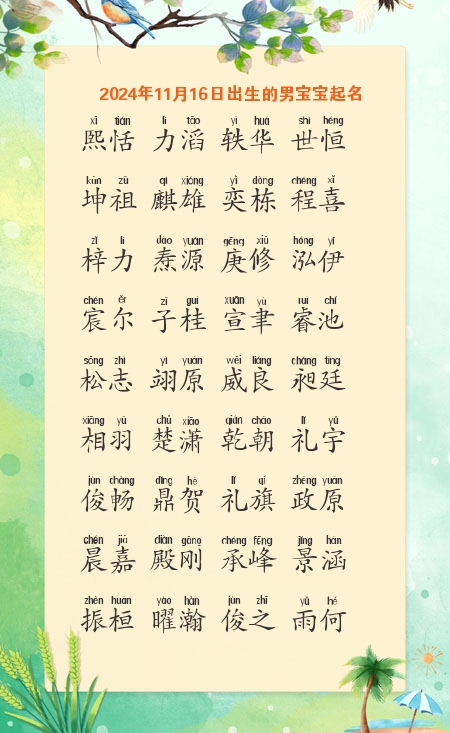 2024年11月16日出生的男宝宝起名
xī tián lì tāo yì huá shì héng
熙恬 力滔 轶华 世恒
kūn zǔ qí xióng yì dòng chéng xǐ
坤祖 麒雄 奕栋 程喜
zǐ lì dào yuán gēng xiū hóng yī
梓力 焘源 庚修 泓伊
chén ěr zǐ guì xuān yù ruì chí
宸尔 子桂 宣聿 睿池
sōng zhì yì yuán wēi liáng chǎng tíng
松志 翊原 威良 昶廷
xiāng yǔ chǔ xiāo qián cháo lǐ yǔ
相羽 楚潇 乾朝 礼宇
jùn chàng dǐng hè lǐ qí zhèng yuán
俊畅 鼎贺 礼旗 政原
chén jiā diàn gāng chéng fēng jǐng hán
晨嘉 殿刚 承峰 景涵
zhèn huán yào hàn jùn zhī yǔ hé
振桓 曜瀚 俊之 雨何